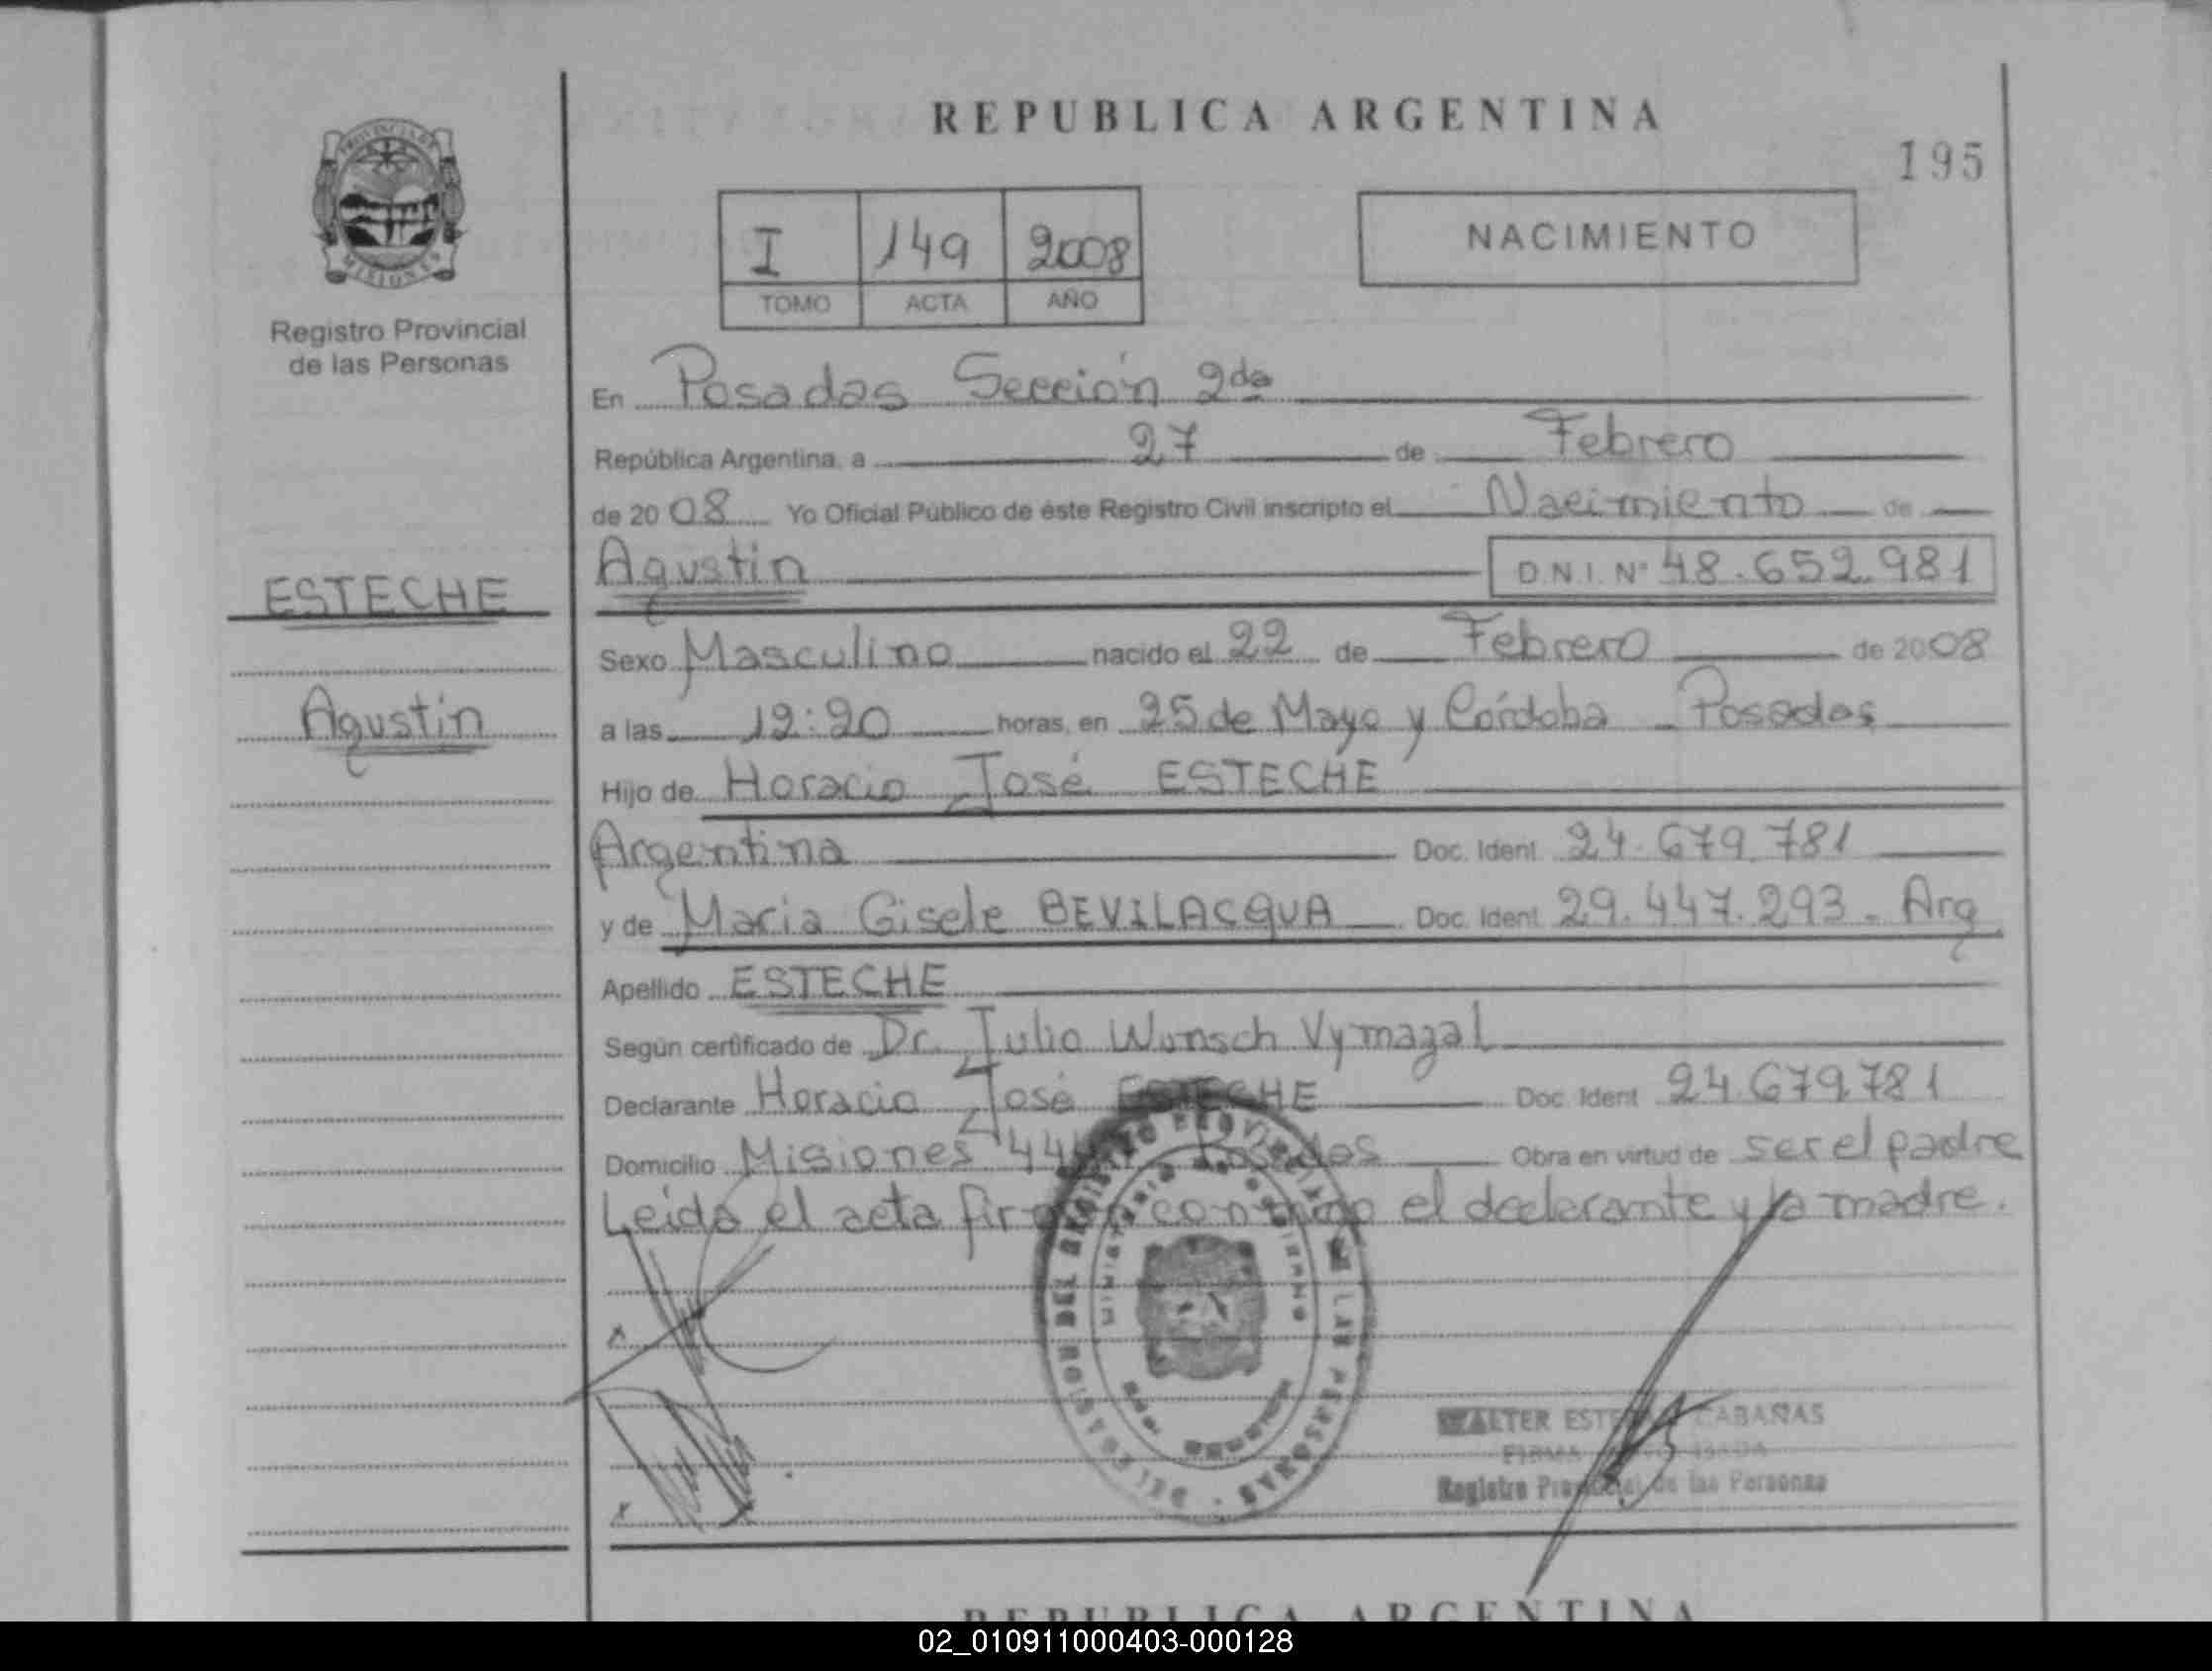 REPUBLICA ARGENTINA
195
PROVINCIA DE
MISIONES
Registro Provincial
de las Personas
I 149 2008
TOMO ACTA AÑO
NACIMIENTO
En Posadas Sección 2da
República Argentina, a 27 de Febrero
de 2008 Yo Oficial Público de éste Registro Civil inscripto el Nacimiento de
ESTECHE
Agustin D.N.I. N° 48.652.981
Sexo Masculino nacido el 22 de Febrero de 2008
Agustin
a las 12:20 horas, en 25 de Mayo y Córdoba - Posadas
Hijo de Horacio José ESTECHE
Argentina Doc. Ident. 24.679.781
y de Maria Gisele BEVILACQUA Doc. Ident. 29.447.293 - Arg
Apellido ESTECHE
Según certificado de Dr. Julio Wunsch Vymazal
Declarante Horacio José ESTECHE Doc. Ident. 24.679.781
Domicilio Misiones Posadas Obra en virtud de ser el padre
Leída el acta firman conmigo el declarante y la madre.
x
WALTER CABAÑAS
FIRMA
Registro Provincial de las Personas
x
REPUBLICA ARGENTINA
02_010911000403-000128